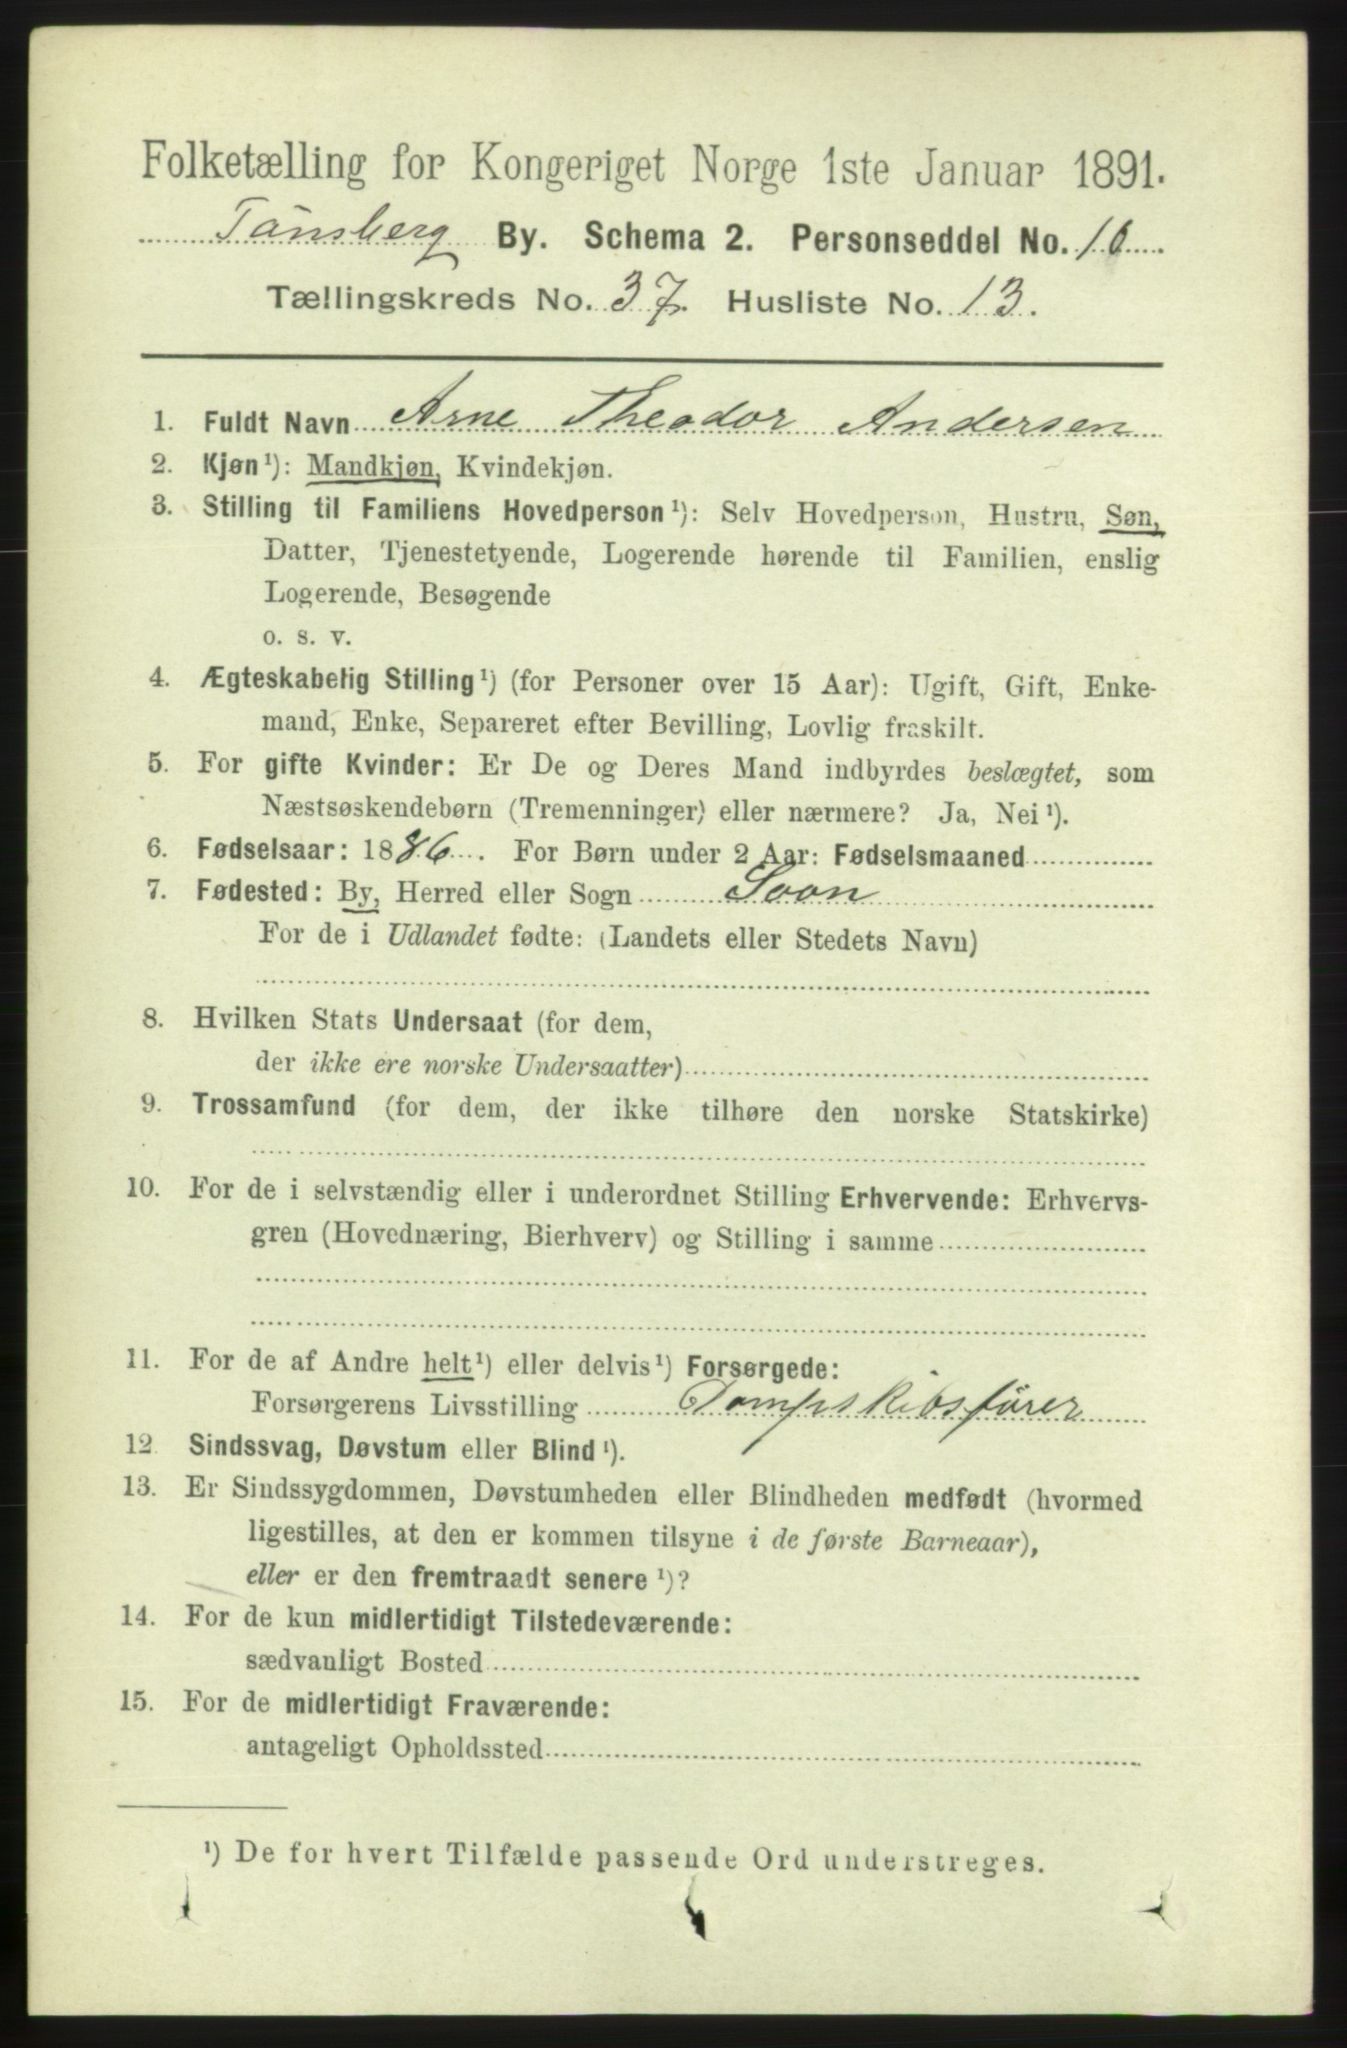 Folketælling for Kongeriget Norge 1ste Januar 1891.
Tönsberg By. Schema 2. Personseddel No. 10
Tællingskreds No. 37. Husliste No. 13.
1. Fuldt Navn Arne Theodor Andersen
2. Kjøn¹): Mandkjøn, Kvindekjøn.
3. Stilling til Familiens Hovedperson¹): Selv Hovedperson, Hustru, Søn,
Datter, Tjenestetyende, Logerende hørende til Familien, enslig
Logerende, Besøgende
o. s. v.
4. Ægteskabelig Stilling¹) (for Personer over 15 Aar): Ugift, Gift, Enke-
mand, Enke, Separeret efter Bevilling, Lovlig fraskilt.
5. For gifte Kvinder: Er De og Deres Mand indbyrdes beslægtet, som
Næstsøskendebørn (Tremenninger) eller nærmere? Ja, Nei¹).
6. Fødselsaar: 1886. For Børn under 2 Aar: Fødselsmaaned
7. Fødested: By, Herred eller Sogn Soon
For de i Udlandet fødte: (Landets eller Stedets Navn)
8. Hvilken Stats Undersaat (for dem,
der ikke ere norske Undersaatter)
9. Trossamfund (for dem, der ikke tilhøre den norske Statskirke)
10. For de i selvstændig eller i underordnet Stilling Erhvervende: Erhvervs-
gren (Hovednæring, Bierhverv) og Stilling i samme
11. For de af Andre helt¹) eller delvis¹) Forsørgede:
Forsørgerens Livsstilling Dampskibsfører
12 Sindssvag, Døvstum eller Blind¹).
13. Er Sindssygdommen, Døvstumheden eller Blindheden medfødt (hvormed
ligestilles, at den er kommen tilsyne i de første Barneaar),
eller er den fremtraadt senere¹)?
14. For de kun midlertidigt Tilstedeværende:
sædvanligt Bosted
15. For de midlertidigt Fraværende:
antageligt Opholdssted
¹) De for hvert Tilfælde passende Ord understreges.